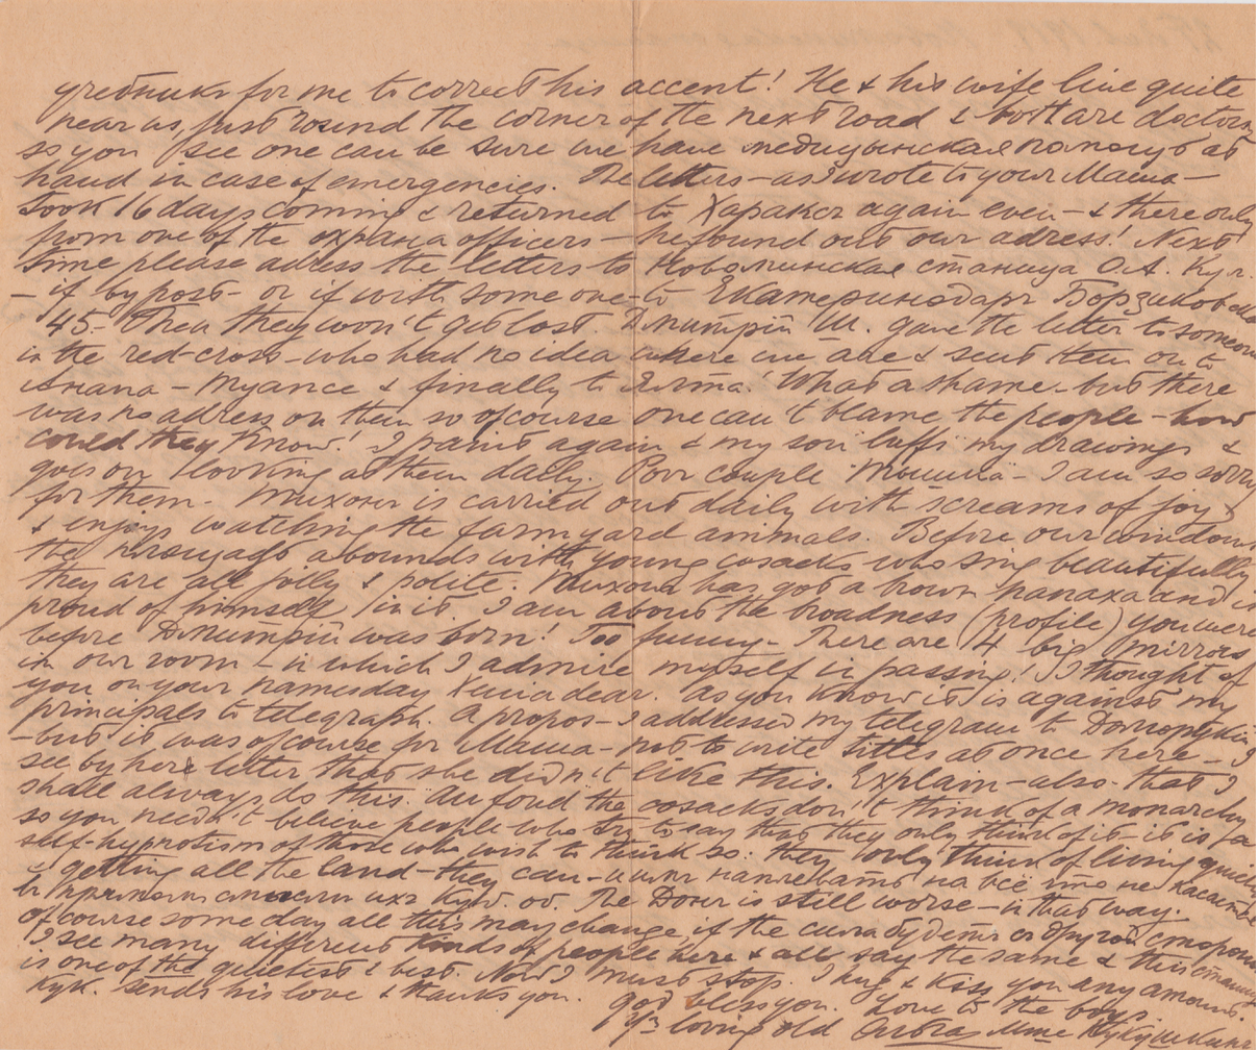 for me to correct his accent! He & his wife live quite
near us, just round the corner of the next road & both are doctors
so you see one can be sure we have медицынская помощь at
hand in case of emergencies. The letters – as I wrote to your Мама –
took 16 days coming & returned to Харакс again even – & there only
from one of the охрана officers – he found out our adress! Next
time please adress the letters to Новоминская станица О.А. Кул.
– if by post – or if with some one – to Екатеринодаръ
45 – Then they won't get lost. Дмитрій Ш. gave the letter to someone
in the red-cross – who had no idea where we are & sent them on to
Анапа – Туапсе & finally to Ялта! What a shame – but there
was no address on them so of course one can't blame the people – how
could they know! I paint again & my son luffs my drawings &
goes on looking at them daily. Poor couple – I am so sorry
for them – Тихонъ is carried out daily with screams of joy &
& enjoys watching the farm yard animals. Before our windows
the abounds with young cosacks who sing beautifully
they are all jolly & polite. Тихонъ has got a brown папаха and is
proud of himself in it. I am about the broadness (profile) you were
before Дмитрій was born! Too funny – There are 4 big mirrors
in our room – in which I admire myself in passing! I thought of
you on your namesday Xenia dear. As you know it is against my
principals to telegraph. Apropos – I addressed my telegram to
– but it was of course for Мама – not to write titles at once here – I
see by here letter that she didn't like this. Explain – also – that I
shall always do this. Au fond the cosacks don't think of a monarchy
so you needn't believe people who try to say that they only think of it – it is
self-hypnotism of those who wish to think so: they only think of living quietly
& getting all the land – they can – имъ наплевать на всё что не касается
The Донъ is still worse – in that way.
Of course some day all this may change, if the сила будетъ съ другой стороны
I see many different kinds of people here & all say the same & this станица
is one of the quietest & best. Now I must stop. I hug & kiss you any amount.
Кук. sends his love & thanks you. God bless you. Love to the boys.
Yr loving old Ольга Mme Кукушкинъ